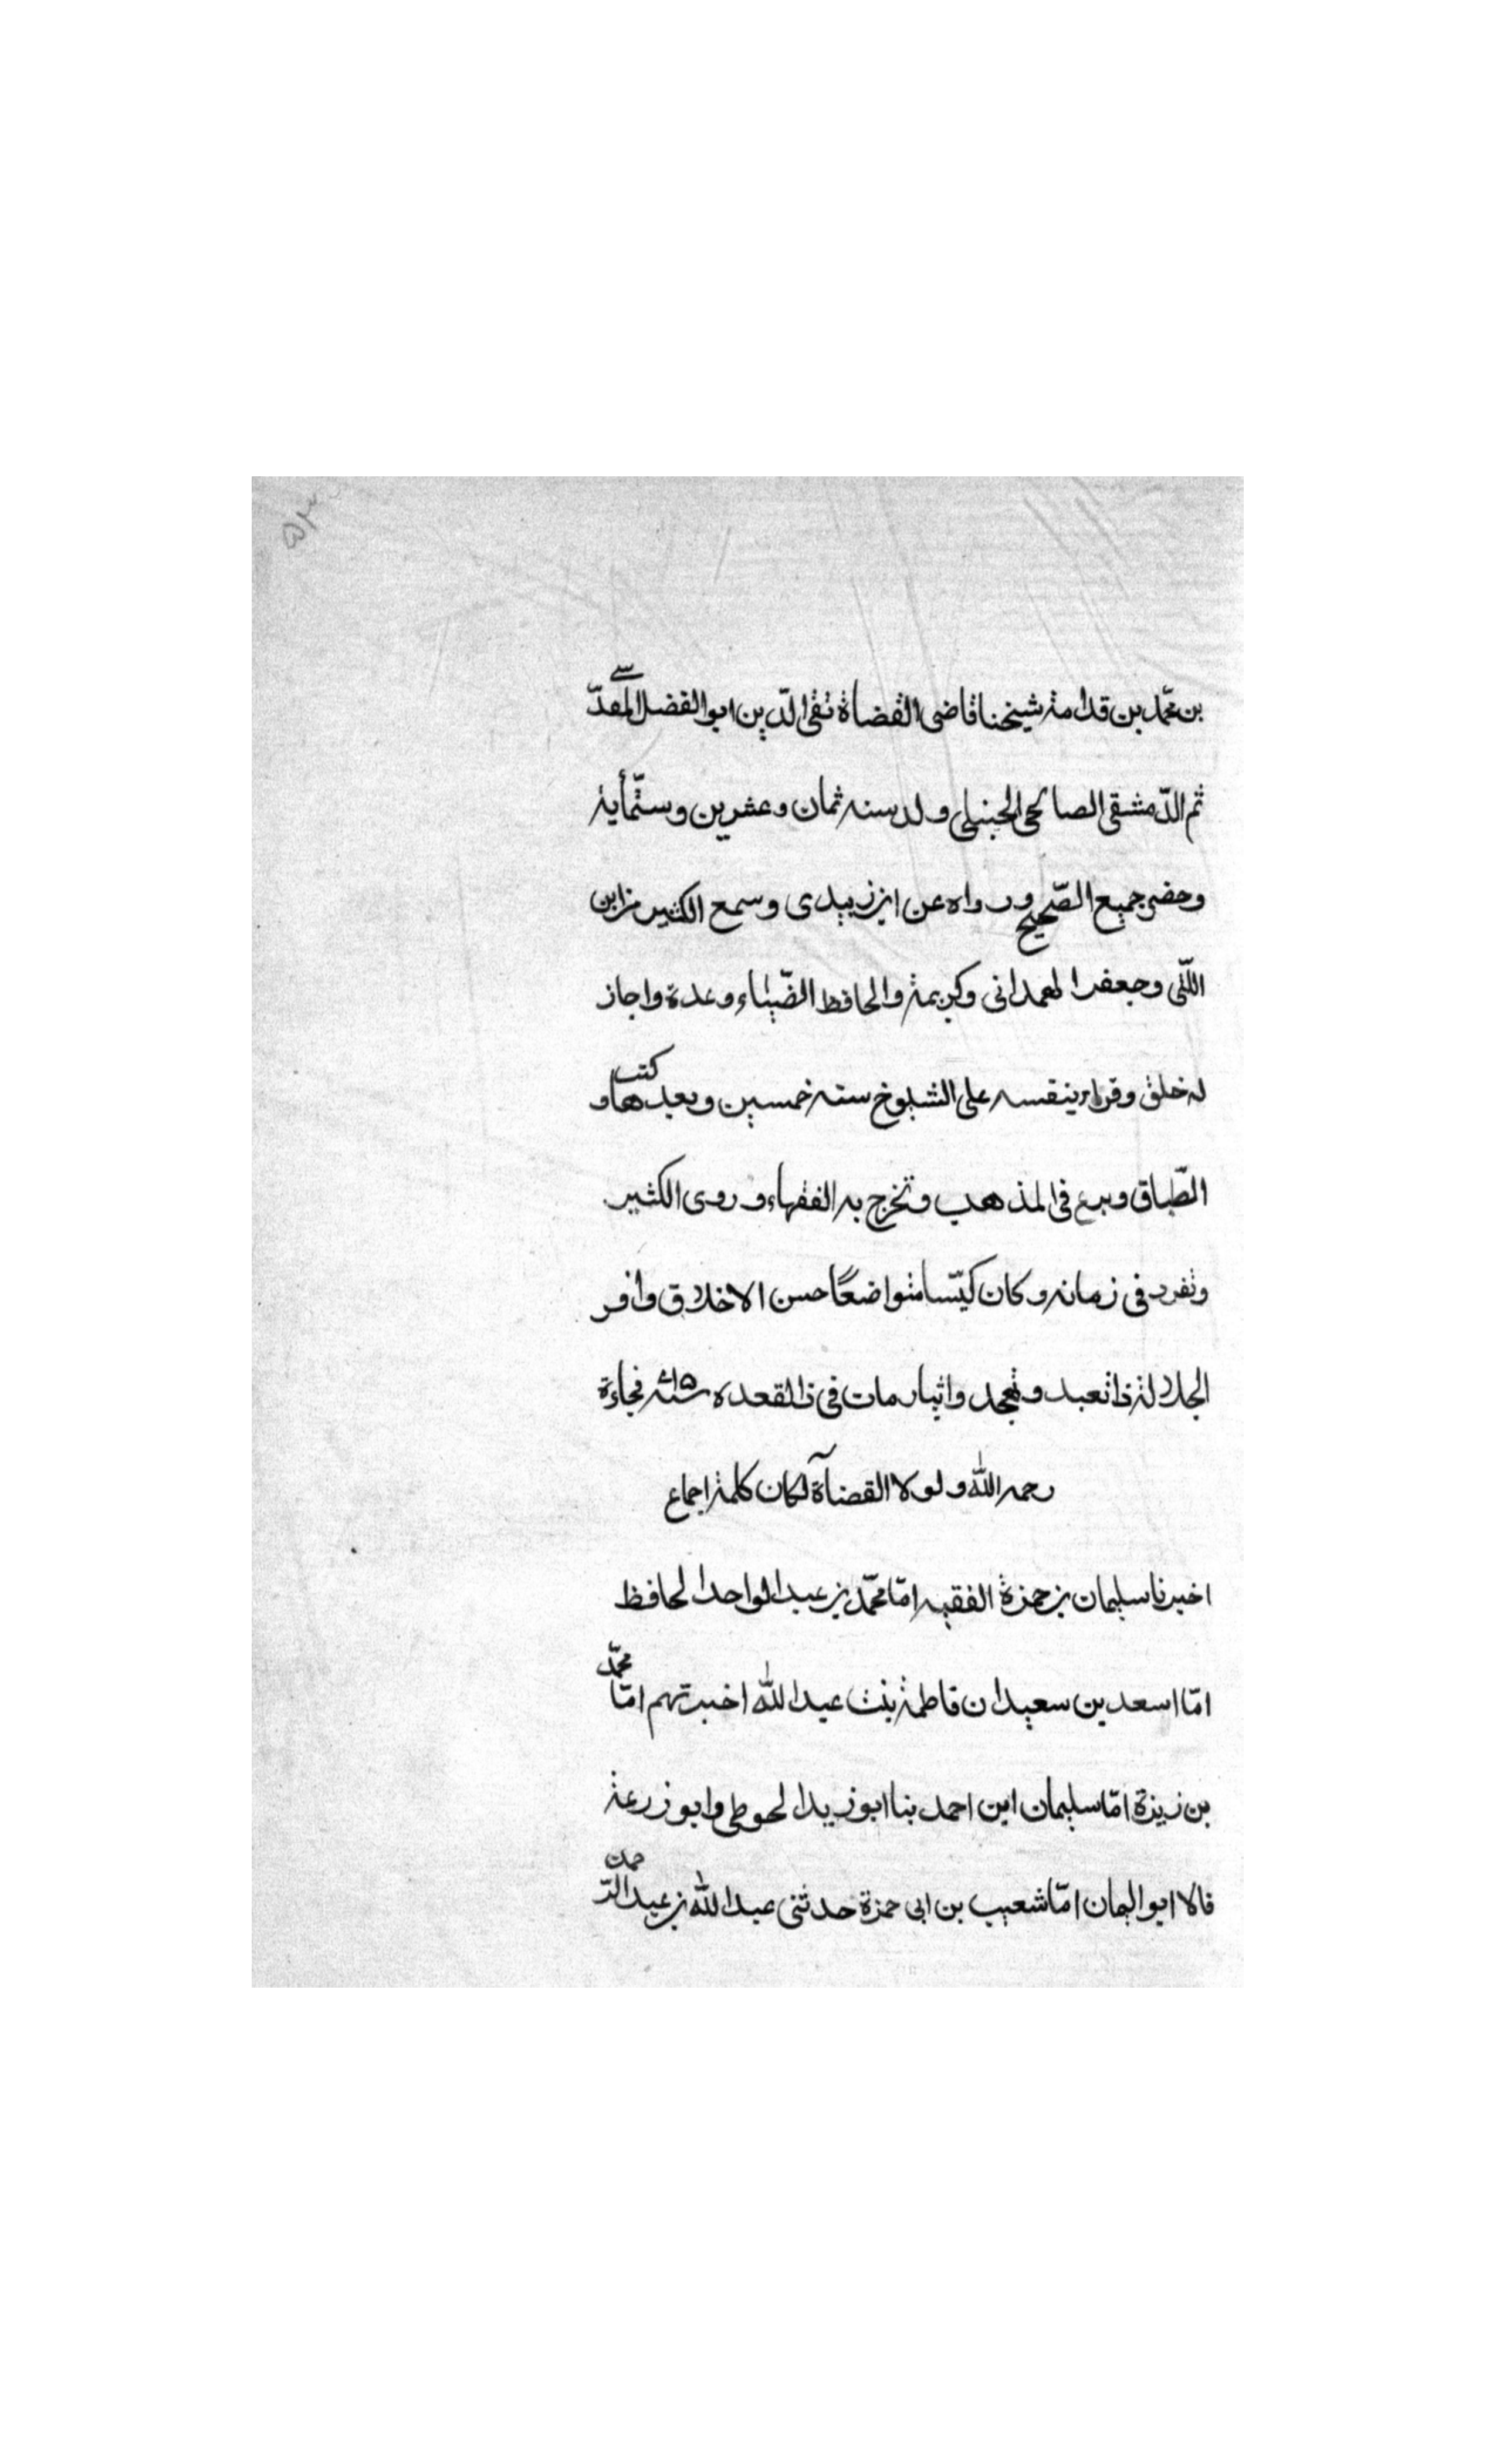 ٥٣
بن محمّد بن قدامة شيخنا قاضى القضاة تقى الدّين ابو الفضل المقدّسى
ثم الدّمشقى الصالحى الحنبلى ولد سنة ثمان وعشرين وستّمأية
وحضر جميع الصّحيح ورواه عن ابن زبيدى وسمع الكثير من ابن
اللّتى وجعفر الهمدانى وكريمة والحافظ الضّياء وعدة واجاز
له خلق وقراء بنفسه على الشيوخ سنة خمسين وبعدها وكتب
الطّباق وبرع فى المذهب وتخرج به الفقهاء وروى الكثير
وتفرد فى زمانه وكان كيّسا متواضعًا حسن الاخلاق وافر
الجلالة ذا تعبد وتهجد وايثار مات فى ذالقعده فجاءة
رحمه الله ولولا القضآة لكان كلمة اجماع
اخبرنا سليمان بن حمزة الفقيه امّا محمّد بن عبد الواحد الحافظ
امّا اسعد بن سعيد ان فاطمة بنت عبد الله اخبرتهم امّا محمّد
بن زيذة امّا سليمان ابن احمد بنا ابو زيد الحوطى وابو زرعة
قالا ابو اليمان امّا شعيب بن ابى حمزة حدثنى عبد الله بن عبد الرّحمن